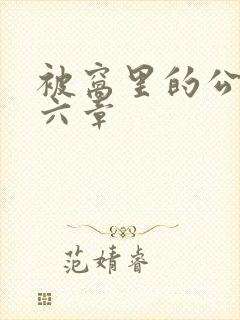 被窝里的公
六章
范婧睿